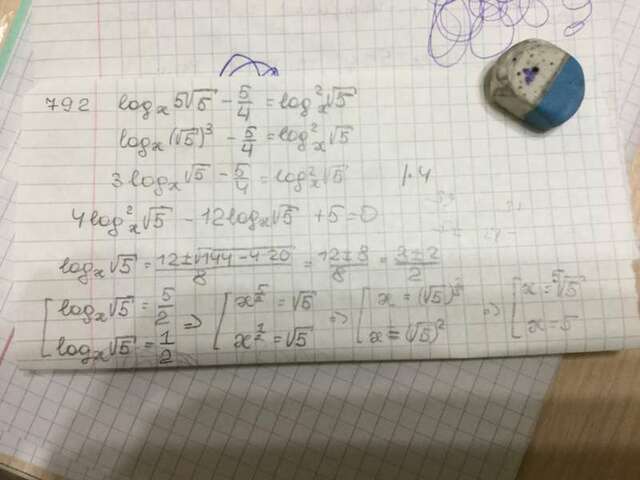 792 log_x 5√5 - 5/4 = log²_x √5
log_x (√5)³ - 5/4 = log²_x √5
3 log_x √5 - 5/4 = log²_x √5 |·4
4 log²_x √5 - 12 log_x √5 + 5 = 0
log_x √5 = (12 ± √(144 - 4·20))/8 = (12 ± 8)/8 = (3 ± 2)/2
[ log_x √5 = 5/2 ; log_x √5 = 1/2 ⇒ [ x^(5/2) = √5 ; x^(1/2) = √5 ⇒ [ x = (√5)^(2/5) ; x = (√5)² ⇒ [ x = ⁵√5 ; x = 5